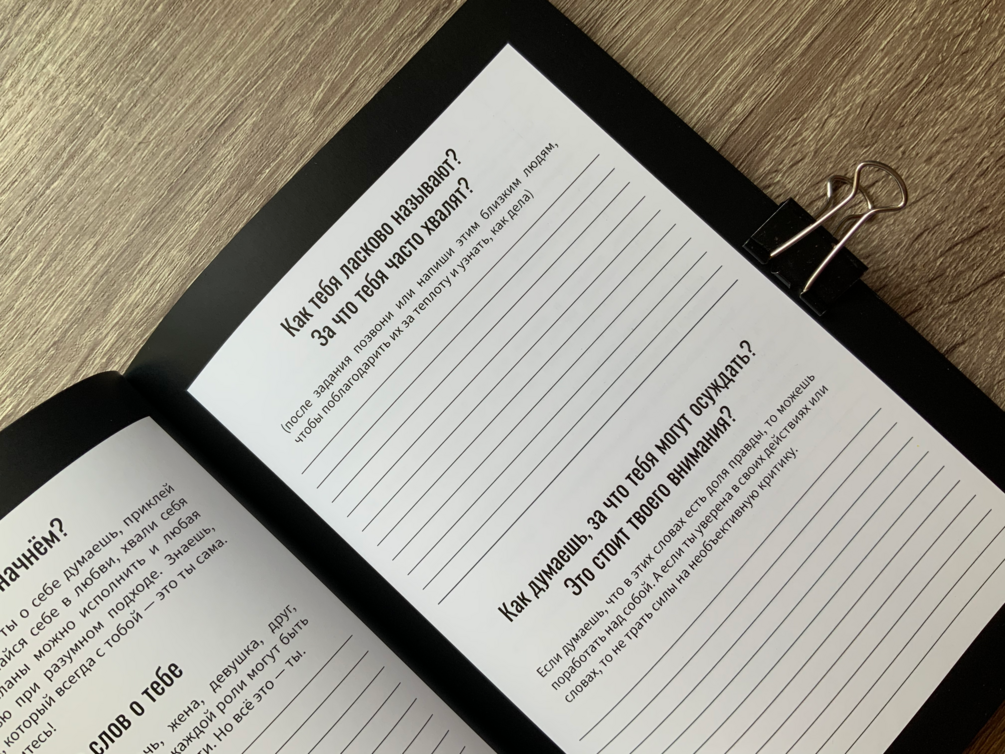 начнём?
ты о себе думаешь, приклей
себе в любви, хвали себя
можно исполнить и любая
при разумном подходе. Знаешь,
который всегда с тобой — это ты сама.
слов о тебе
жена, девушка, друг,
каждой роли могут быть
Но всё это — ты.
Как тебя ласково называют?
За что тебя часто хвалят?
(после задания позвони или напиши этим близким людям,
чтобы поблагодарить их за теплоту и узнать, как дела)
Как думаешь, за что тебя могут осуждать?
Это стоит твоего внимания?
Если думаешь, что в этих словах есть доля правды, то можешь
поработать над собой. А если ты уверена в своих действиях или
словах, то не трать силы на необъективную критику.